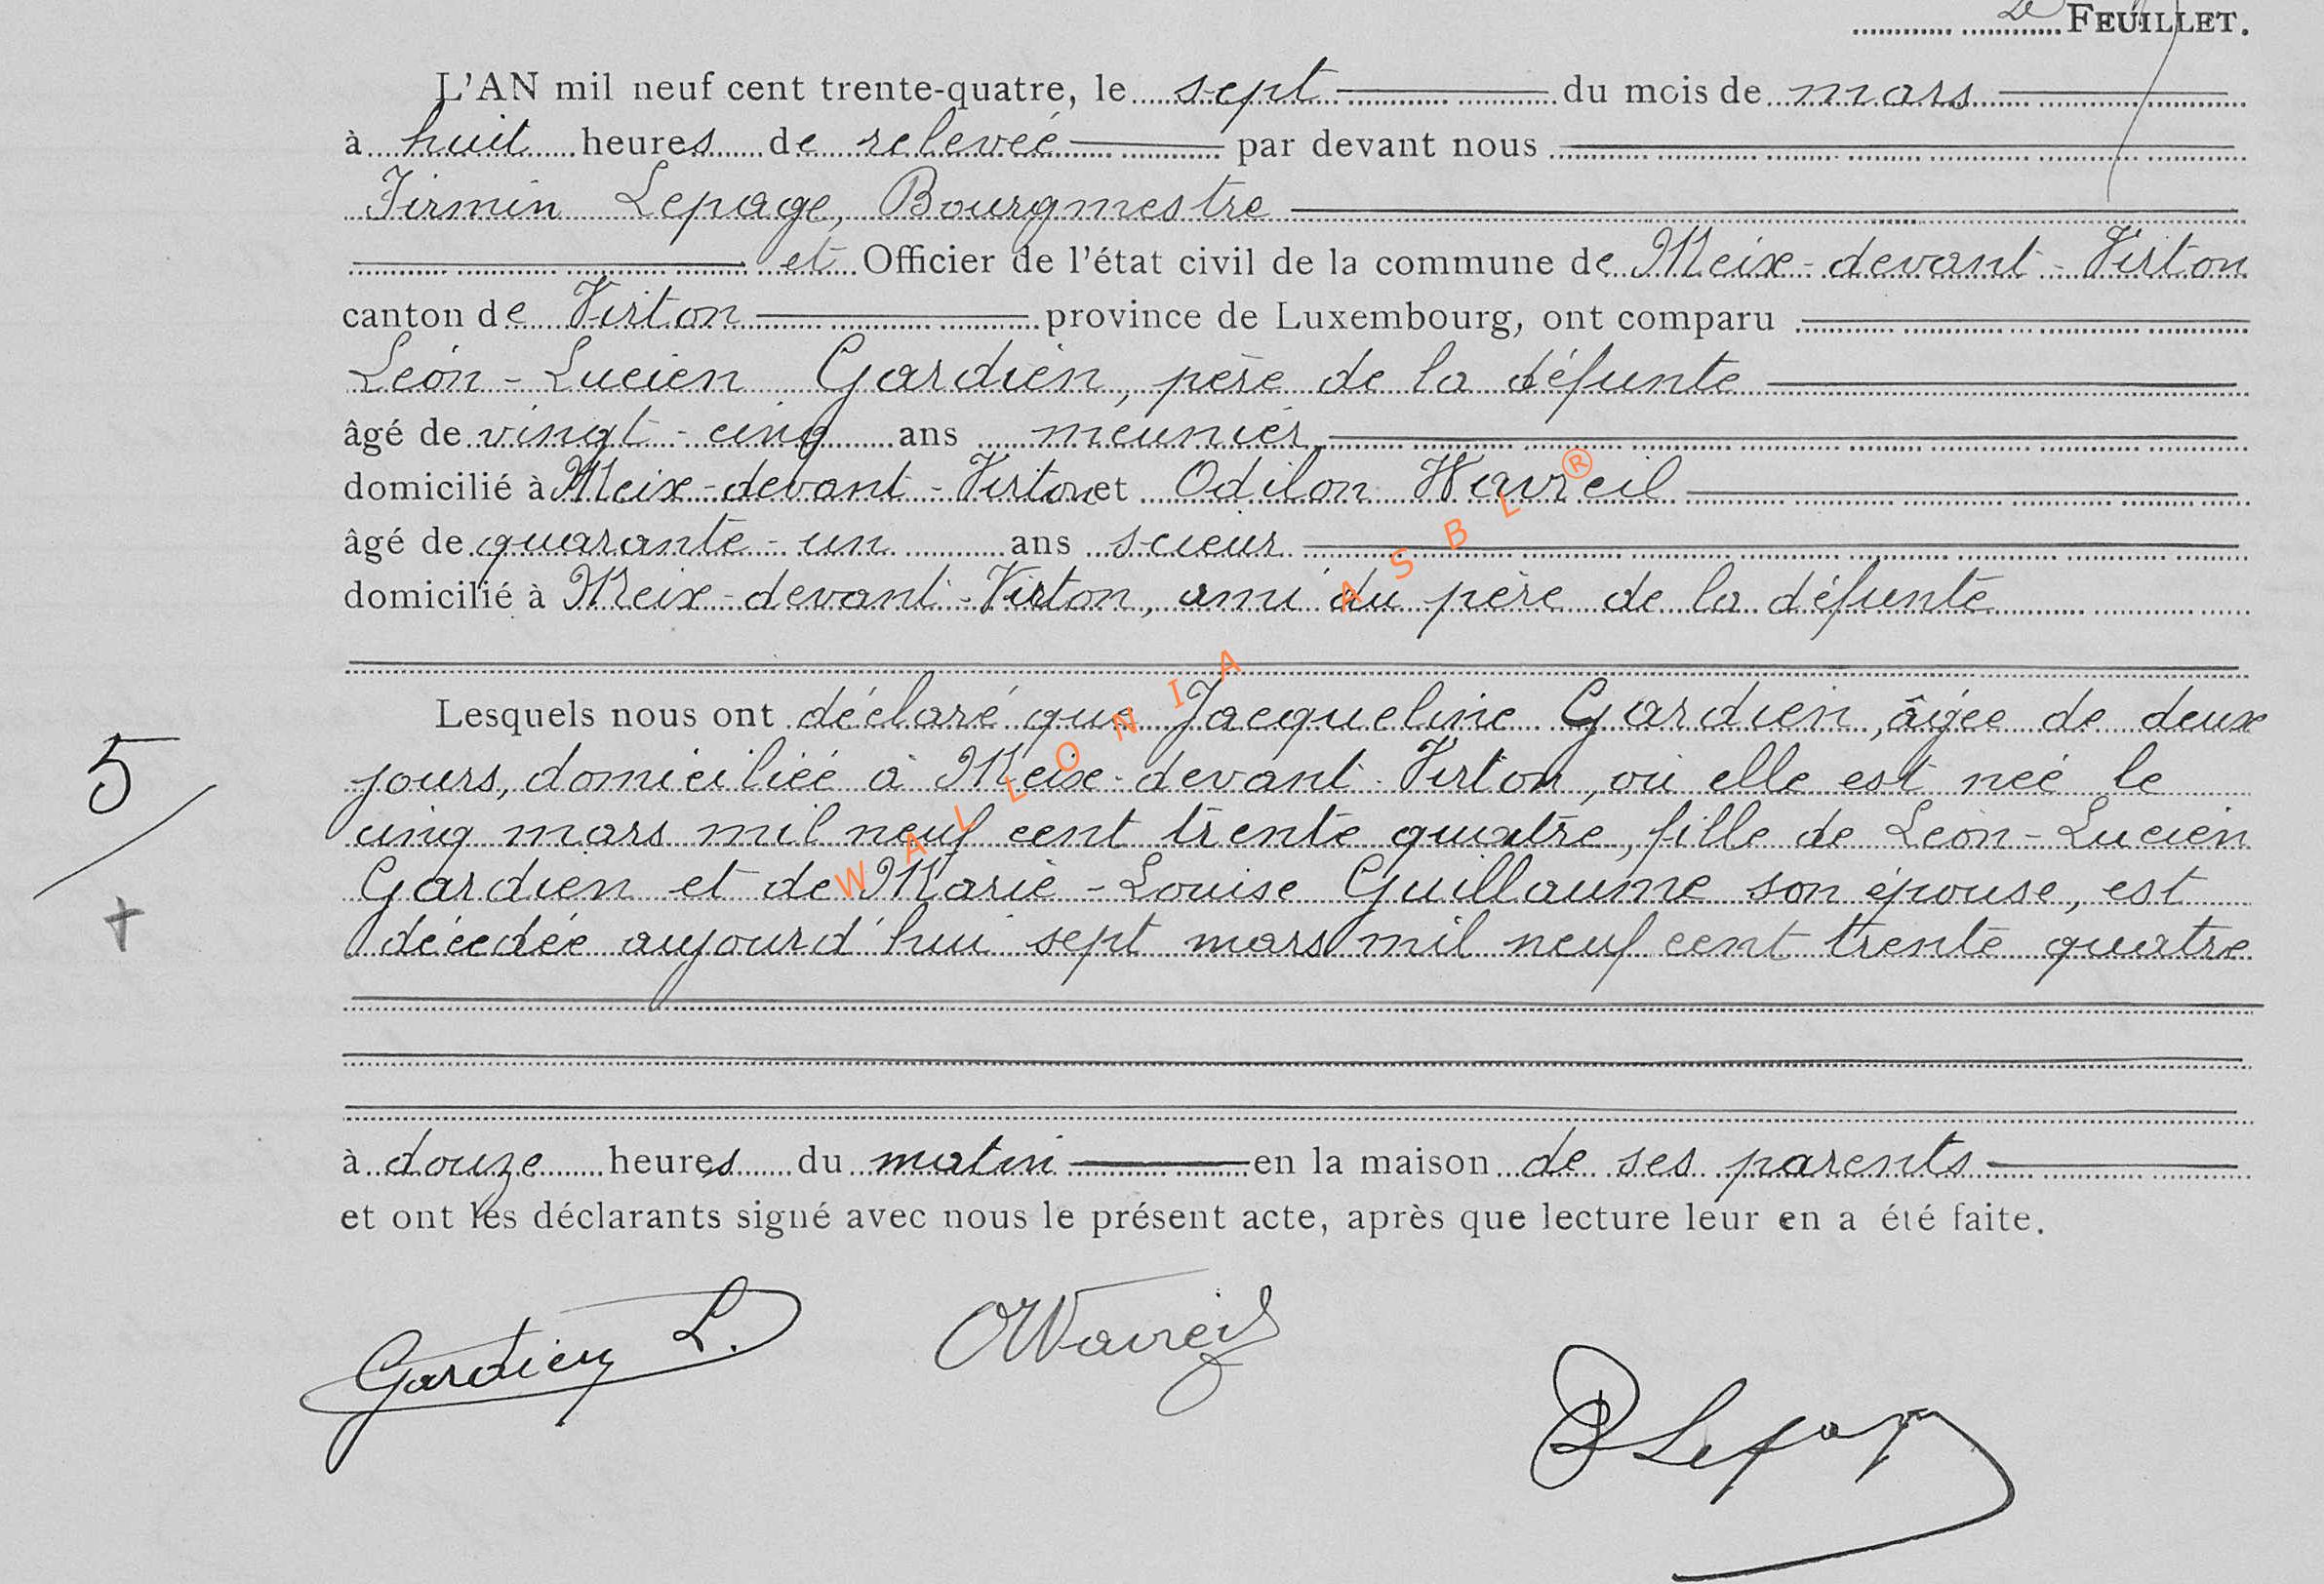 2e FEUILLET.
L'AN mil neuf cent trente-quatre, le sept du mois de mars
à huit heures de relevée par devant nous
Firmin Lepage, Bourgmestre
et Officier de l'état civil de la commune de Meix-devant-Virton
canton de Virton province de Luxembourg, ont comparu
Léon-Lucien Gardien, père de la défunte
âgé de vingt-cinq ans meunier
domicilié à Meix-devant-Virton et Odilon Wavreil
âgé de quarante-un ans scieur
domicilié à Meix-devant-Virton, ami du père de la défunte
Lesquels nous ont déclaré que Jacqueline Gardien, âgée de deux
5
jours, domiciliée à Meix-devant-Virton, où elle est née le
cinq mars mil neuf cent trente quatre, fille de Léon-Lucien
Gardien et de Marie-Louise Guillaume son épouse, est
décédée aujourd'hui sept mars mil neuf cent trente quatre
à douze heures du matin en la maison de ses parents
et ont les déclarants signé avec nous le présent acte, après que lecture leur en a été faite.
Gardien L. OWavreil
Lepage
WALLONIA ASBL®